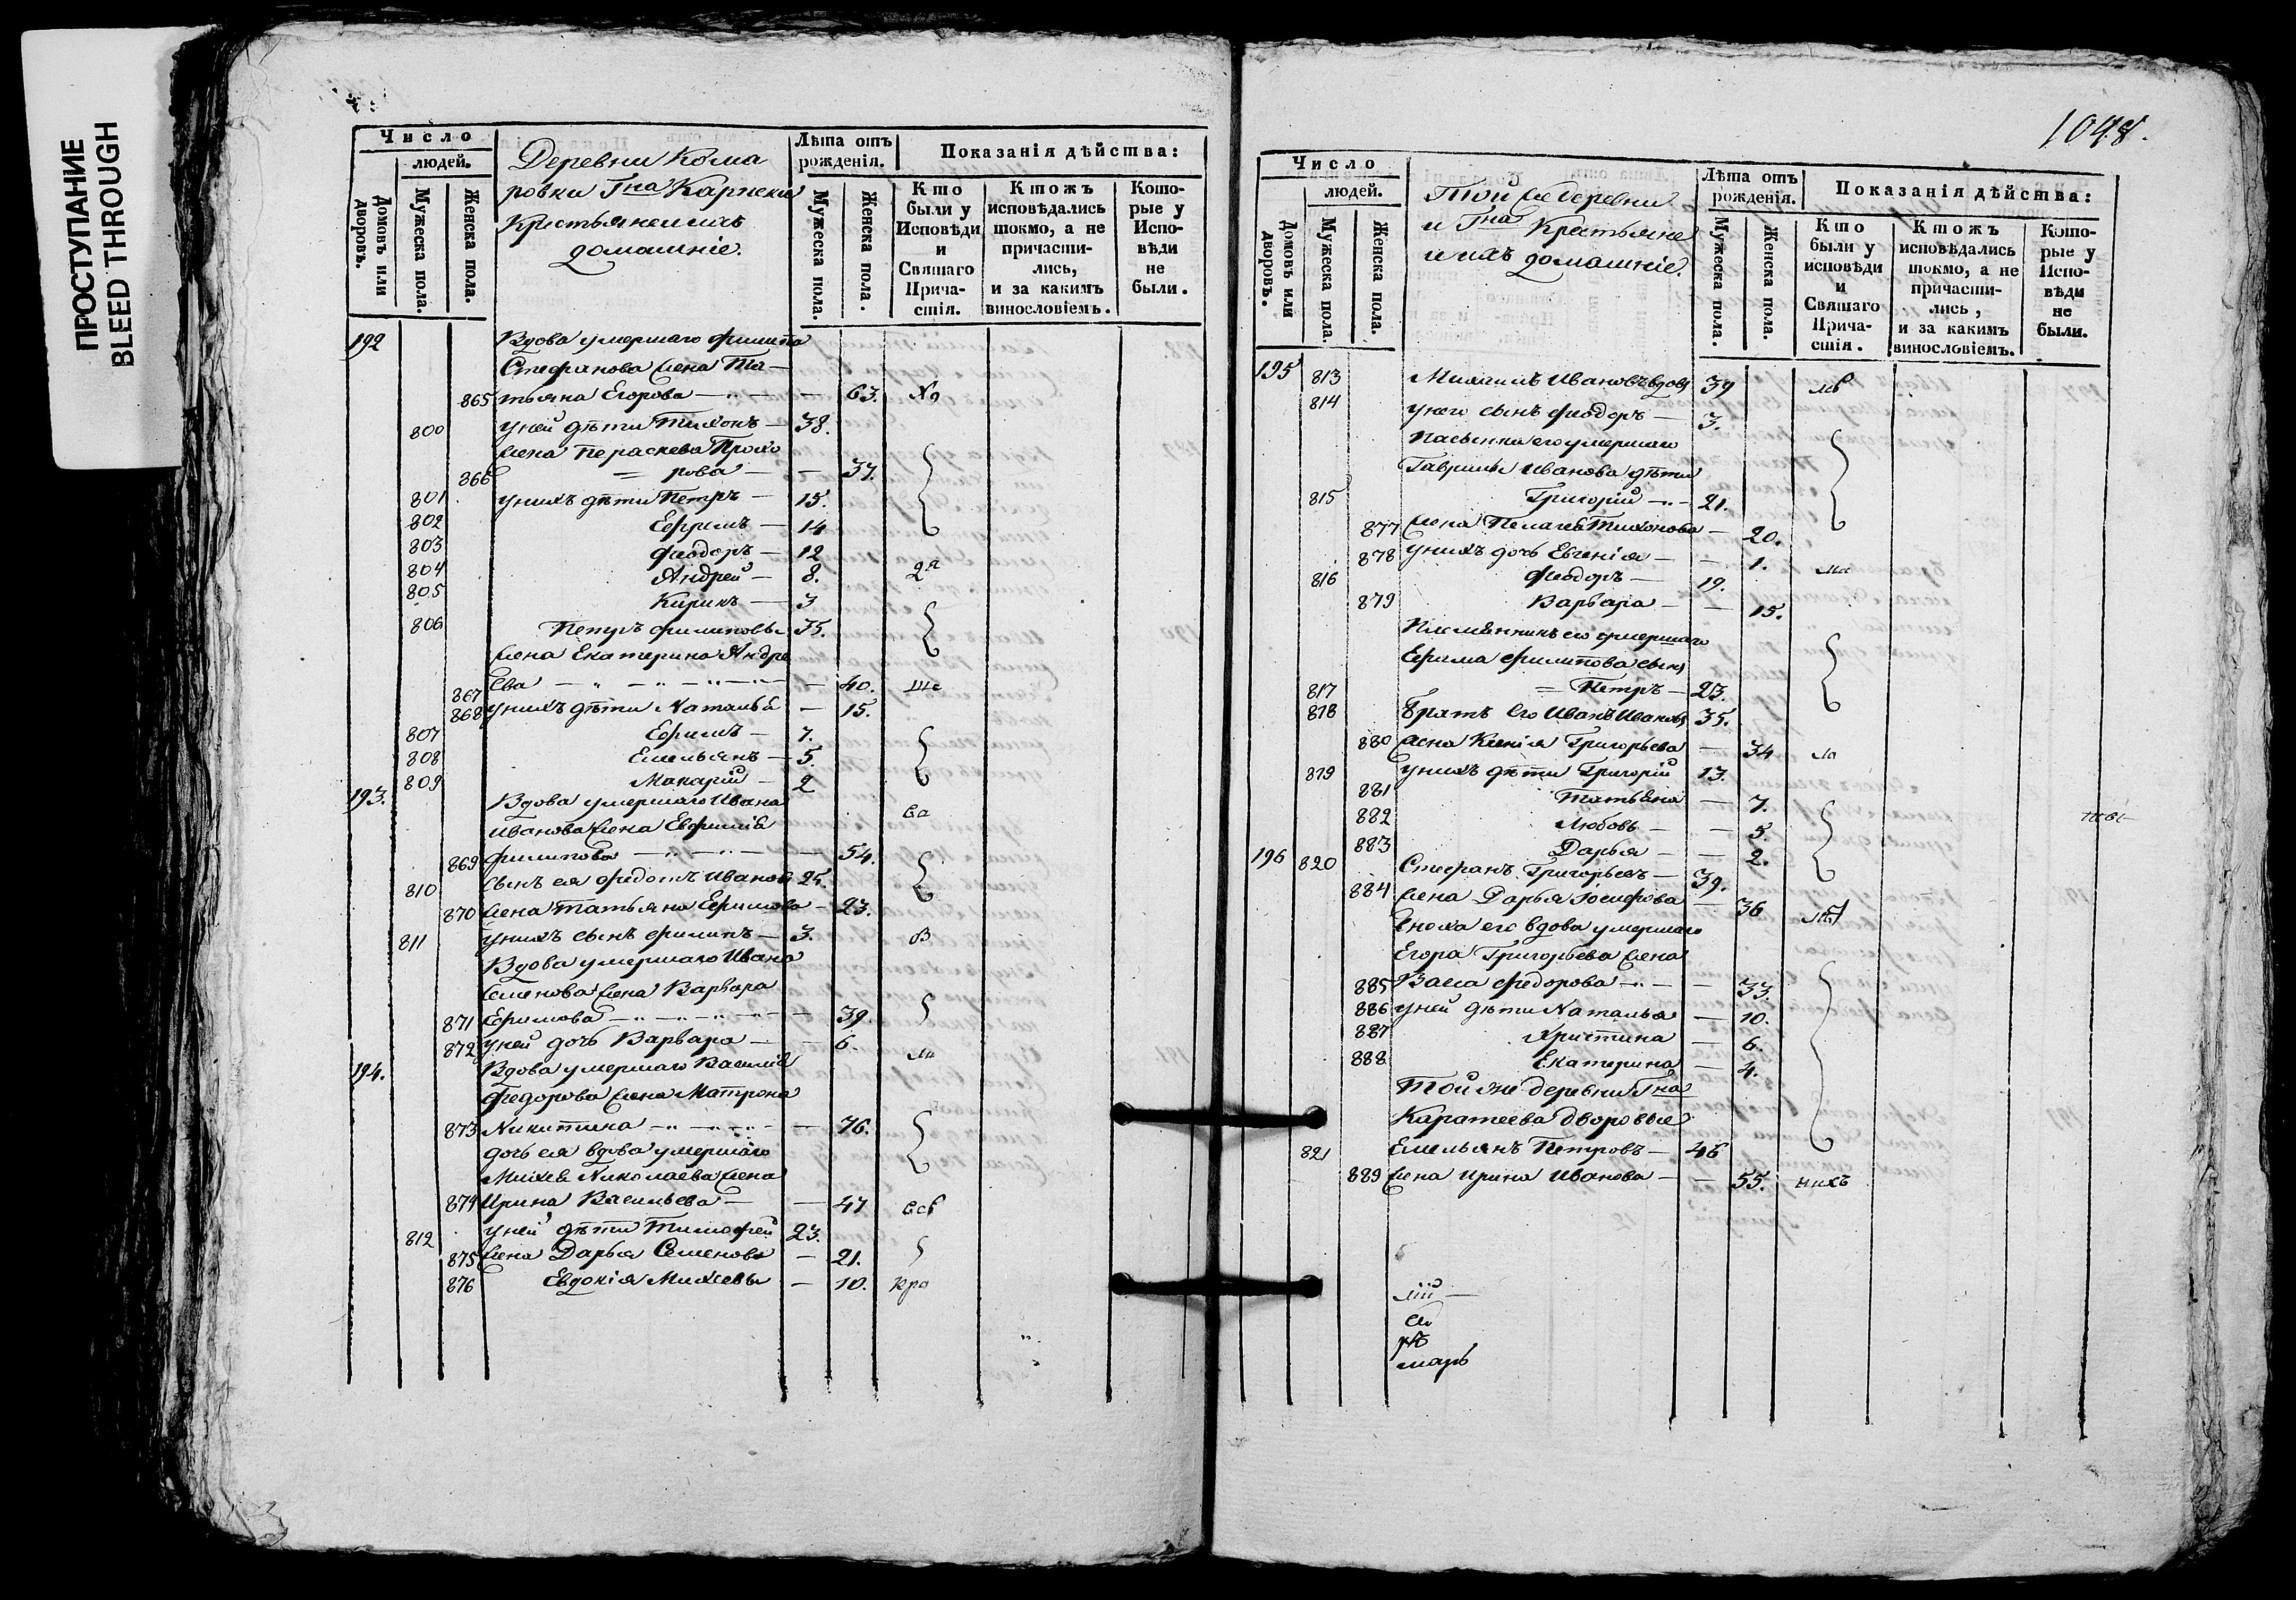 ПРОСТУПАНИЕ
BLEED THROUGH
Число
людей.
Домовъ или дворовъ.
Мужеска пола.
Женска пола.
Деревни Кома
ровки Гна
Крестьяне и ихъ
домашніе.
Лѣта отъ рожденія.
Мужеска пола.
Женска пола.
Показанія дѣйства:
Кто были у Исповѣди и Святаго Прича- стія.
Ктожъ исповѣдались токмо, а не причасти- лись, и за какимъ винословіемъ.
Кото- рые у Испо- вѣди не были.
192 Вдова умершаго Филипа
Стефанова жена Та-
865 тьяна Егорова — 63.
800 у ней дѣти Тихонъ — 38.
жена Параскева Прохо
866 = рова — 37.
801 у нихъ дѣти Петръ — 15.
802 Ефремъ — 14
803 Феодоръ — 12
804 Андрей — 8.
805 Кирикъ — 3
806 Петръ Филиповъ 35.
жена Екатерина Андре
867 ева — 40.
868 у нихъ дѣти Наталья — 15.
807 Ефимъ — 7.
808 Емельянъ — 5.
809 Макарій — 2
193. Вдова умершаго Ивана
Иванова жена Евфимія
869 Филипова — 54.
810 сынъ ея Федотъ Ивановъ 25.
870 жена Татьяна Ефимова — 23.
811 у нихъ сынъ Филипъ — 3.
Вдова умершаго Ивана
Семенова жена Варвара
871 Ефимова — 39.
872 у ней дочь Варвара — 6.
194. Вдова умершаго Василія
Федорова жена Матрона
873 Никитина — 76.
дочь ея вдова умершаго
Михея Николаева жена
874 Ирина Васильева — 47
812 у ней дѣти Тимофей 23.
875 жена Дарья Семенова — 21.
876 Евдокія Михеевы — 10.
1048.
Число
людей.
Домовъ или дворовъ.
Мужеска пола.
Женска пола.
Той же деревни
и Гна Крестьяне
и ихъ домашніе.
Лѣта отъ рожденія.
Мужеска пола.
Женска пола.
Показанія дѣйства:
Кто были у исповѣди и Святаго Прича- стія.
Ктожъ исповѣдались токмо, а не причасти- лись, и за какимъ винословіемъ.
Кото- рые у Испо- вѣди не были.
195 813 Михаилъ Ивановъ вдовъ 39
814 у него сынъ Феодоръ — 3.
Пасынки его умершаго
Гаврилы Иванова дѣти
815 Григорій — 21.
877 жена Пелагея Тихонова — 20.
878 у нихъ дочь Евгенія — 1.
816 Феодоръ — 19.
879 Варвара — 15.
Племянникъ его умершаго
Ефима Филипова сынъ
817 = Петръ — 23.
818 Братъ его Иванъ Ивановъ 35.
880 жена Ксенія Григорьева — 34
819 у нихъ дѣти Григорій 13.
881 Татьяна — 7.
882 Любовь — 5.
883 Дарья — 2.
196 820 Стефанъ Григорьевъ — 39.
884 жена Дарья Іосифова — 36
Сноха его вдова умершаго
Егора Григорьева жена
885 Васса Федорова — 33.
886 у ней дѣти Наталья — 10.
887 Христина — 6.
888 Екатерина — 4.
Той же деревни Гна
Каратеева дворовые
821 Емельянъ Петровъ — 46
889 жена Ирина Иванова — 55. нихъ